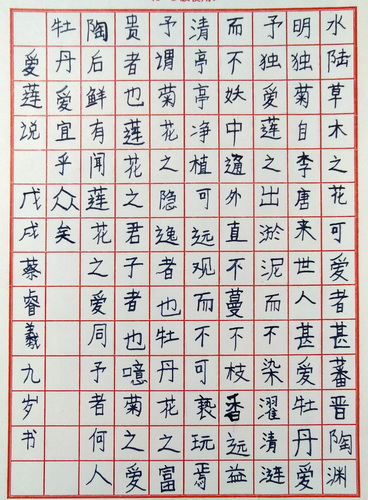 水陆草木之花可爱者甚蕃晋陶渊
明独菊自李唐来世人甚爱牡丹爱
予独爱莲之出淤泥而不染濯清涟
而不妖中通外直不蔓不枝香远益
清亭亭净植可远观而不可亵玩焉
予谓菊花之隐逸者也牡丹花之富
贵者也莲花之君子者也噫菊之爱
陶后鲜有闻莲花之爱同予者何人
牡丹爱宜乎众矣
爱莲说 戊戌蔡睿羲九岁书